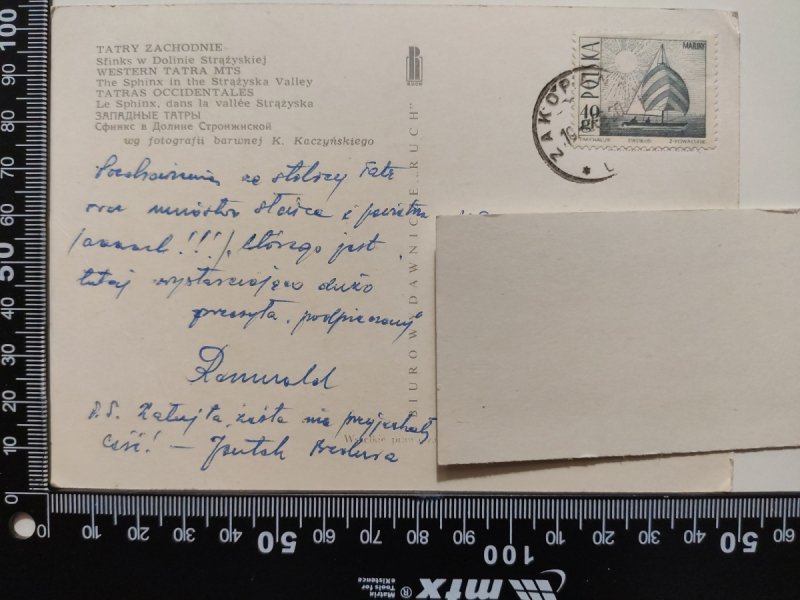 TATRY ZACHODNIE
Sfinks w Dolinie Strążyskiej
WESTERN TATRA MTS
The Sphinx in the Strążyska Valley
TATRAS OCCIDENTALES
Le Sphinx, dans la vallée Strążyska
ЗАПАДНЫЕ ТАТРЫ
Сфинкс в Долине Стронжинской
wg fotografii barwnej K. Kaczyńskiego
RUCH
BIURO WYDAWNICZE „RUCH"
Wszelkie prawa
POLSKA
40 gr
MARINY
ZAKOPANE
Pozdrowienia ze stolicy Tatr
oraz mnóstwo słońca i powietrza
(aaaach!!!), którego jest
tutaj wystarczająco dużo
przesyła „podpieczony"
Romuald
P.S. Żałujta, żeśta nie przyjechały
Cześć! –
0 10 20 30 40 50 60 70 80 90 100
0 10 20 30 40 50 60 70 80 90 100 10 20 30 40 50 60
mtx
Matrix
Tools for
eXistence